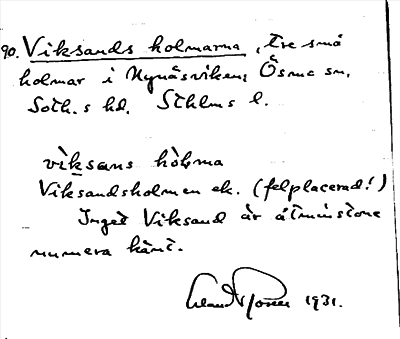 90. Viksands holmarna, tre små
holmar i Nynäsviken, Ösmo sn,
Soth.s hd, Sthlms l.
viksans hòlma
Viksandsholmen ek. (felplacerad!)
Inget Viksand är åtminstone
numera känt.
1931.